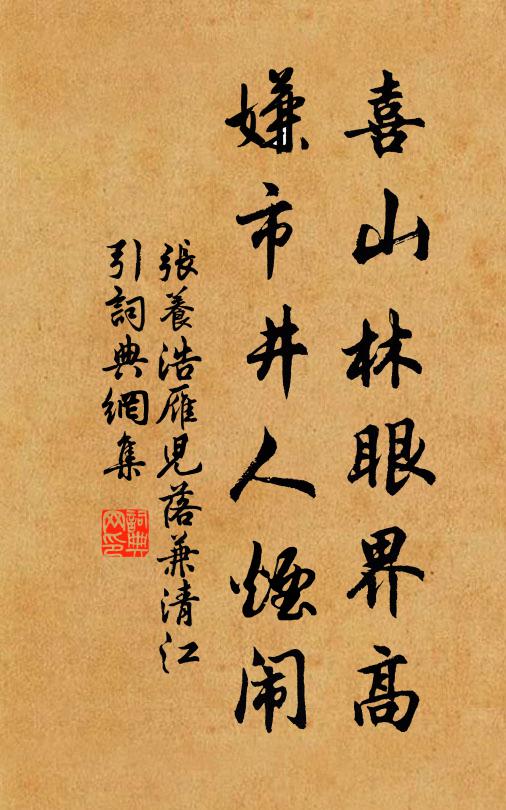 喜山林眼界高
嫌市井人煙闹
張養浩雁児落兼清江
引詞典網集
詞典
网印